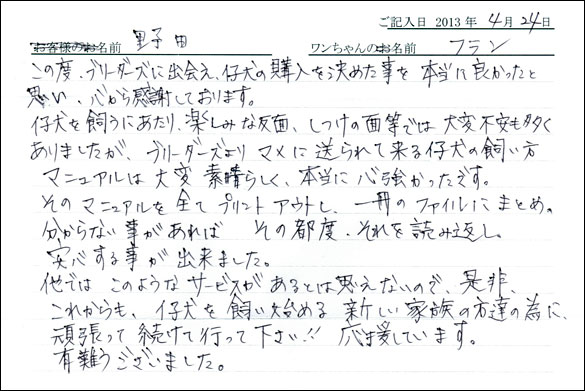 ご記入日 2013年 4月24日
お客様のお名前 野田 ワンちゃんのお名前 フラン
この度、ブリーダーズに出会え、仔犬の購入を決めた事を 本当に良かったと
思い、心から感謝しております。
仔犬を飼うにあたり、楽しみな反面、しつけの面等では 大変不安も多く
ありましたが、ブリーダーズより マメに 送られて来る仔犬の飼い方
マニュアルは 大変 素晴らしく、本当に 心強かったです。
その マニュアルを 全て プリント アウトし、一冊の ファイルに まとめ。
分からない 事が あれば その 都度、それを 読み返し、
安心する事が 出来ました。
他では このような サービスが あるとは 思えないので、是非、
これからも、仔犬を 飼い始める 新しい 家族の方達の 為に、
頑張って 続けて行って 下さい!! 応援しています。
有難うございました。